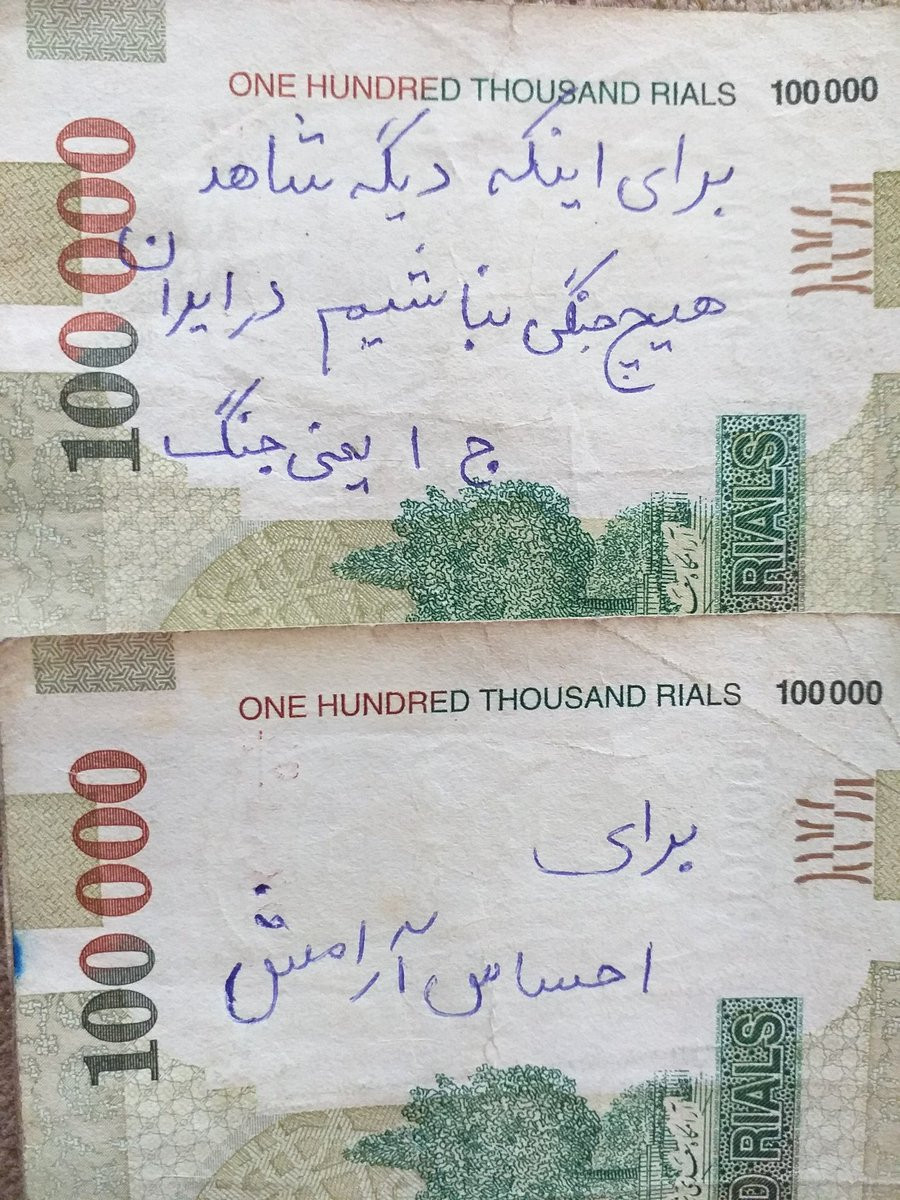 ONE HUNDRED THOUSAND RIALS 100 000
برای اینکه دیگه شاهد
هیچ جنگی نباشیم در ایران
ج ا یعنی جنگ
100 000
RIALS
ONE HUNDRED THOUSAND RIALS 100 000
برای
احساس آرامش
100 000
RIALS